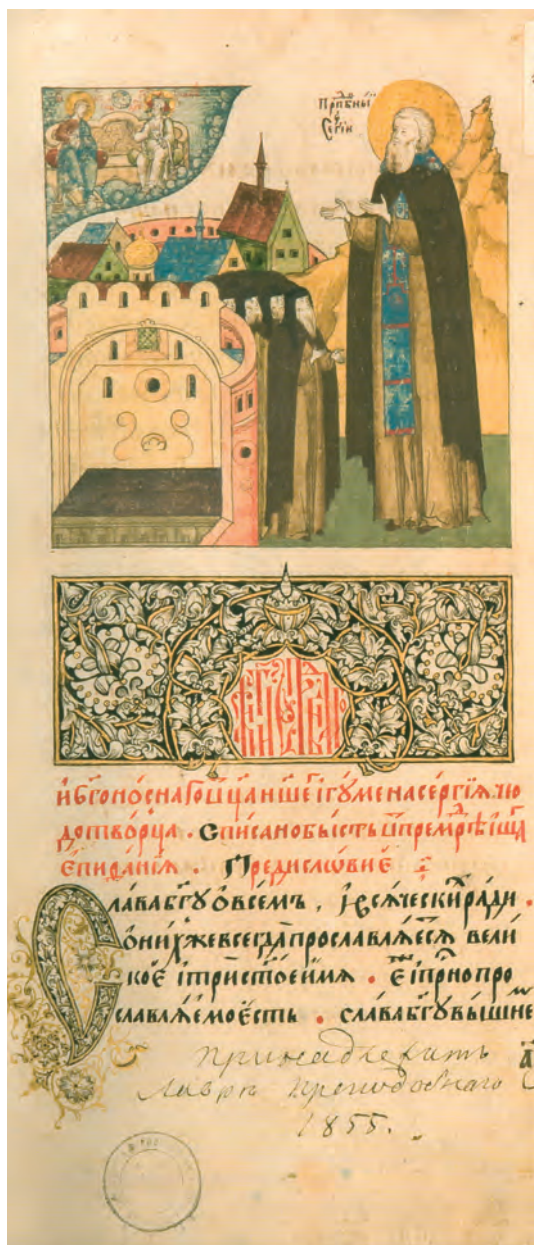 Прпⷣбныи
Сергіи
и бг҃оно́сна го ѿц҃а н҃ше гⷢ҇ ігꙋ́мена се́ргїѧ чю
дотво́рца . Списано бы́сть ѿ прем꙯дрѣ́ишаⷢ҇
Єпифа́нїѧ . Предисло́вїе
Сла́ва бг҃ꙋ ѡ всє́мъ , і҆ всѧ́ческиⷯ ра́ди .
ѡ ниⷯже всегда̀ просла́влѧ́єсѧ вели
коє и҆ трист҃оє и҆́мѧ . є҆́же и҆ прⷭ҇но про
славлѧ́емо є҆́сть . сла́ва бг҃ꙋ вы́шне
Принадлежитъ
Лавры Преподобнаго
1855.